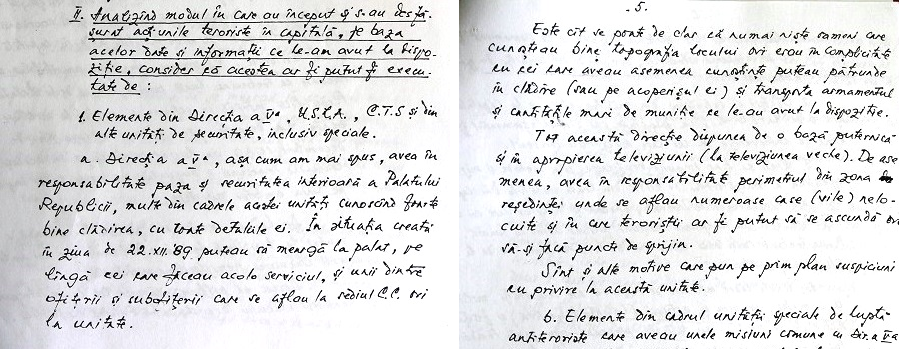 II. Analizînd modul în care au început și s-au desfă-
șurat acțiunile teroriste în capitală, pe baza
acelor date și informații ce le-am avut la dispo-
ziție, consider că acestea ar fi putut fi execu-
tate de :
1. Elemente din Direcția a Vᵃ, U.S.L.A., C.T.S și din
alte unități de securitate, inclusiv speciale.
a. Direcția a Vᵃ, așa cum am mai spus, avea în
responsabilitate paza și securitatea interioară a Palatului
Republicii, multe din cadrele acestei unități cunoscând foarte
bine clădirea, cu toate detaliile ei. În situația creată
în ziua de 22.XII.89 puteau să meargă la palat, pe
lîngă cei care făceau acolo serviciul, și unii dintre
ofițerii și subofițerii care se aflau la sediul C.C. ori
la unitate.
- 5.
Este cît se poate de clar că numai niște oameni care
cunoșteau bine topografia locului ori erau în complicitate
cu cei care aveau asemenea cunoștințe puteau pătrunde
în clădire (sau pe acoperișul ei) și transporta armamentul
și cantitățile mari de muniție ce le-au avut la dispoziție.
Tot această direcție dispunea de o bază puternică
și în apropierea televiziunii (la televiziunea veche). De ase-
menea, avea în responsabilitate perimetrul din zona
reședinței unde se aflau numeroase case (vile) nelo-
cuite și în care teroriștii ar fi putut să se ascundă ori
să-și facă puncte de sprijin.
Sînt și alte motive care pun pe prim plan suspiciuni
cu privire la această unitate.
b. Elemente din cadrul unității speciale de luptă
antiteroriste care aveau unele misiuni comune cu Dir. a Vᵃ